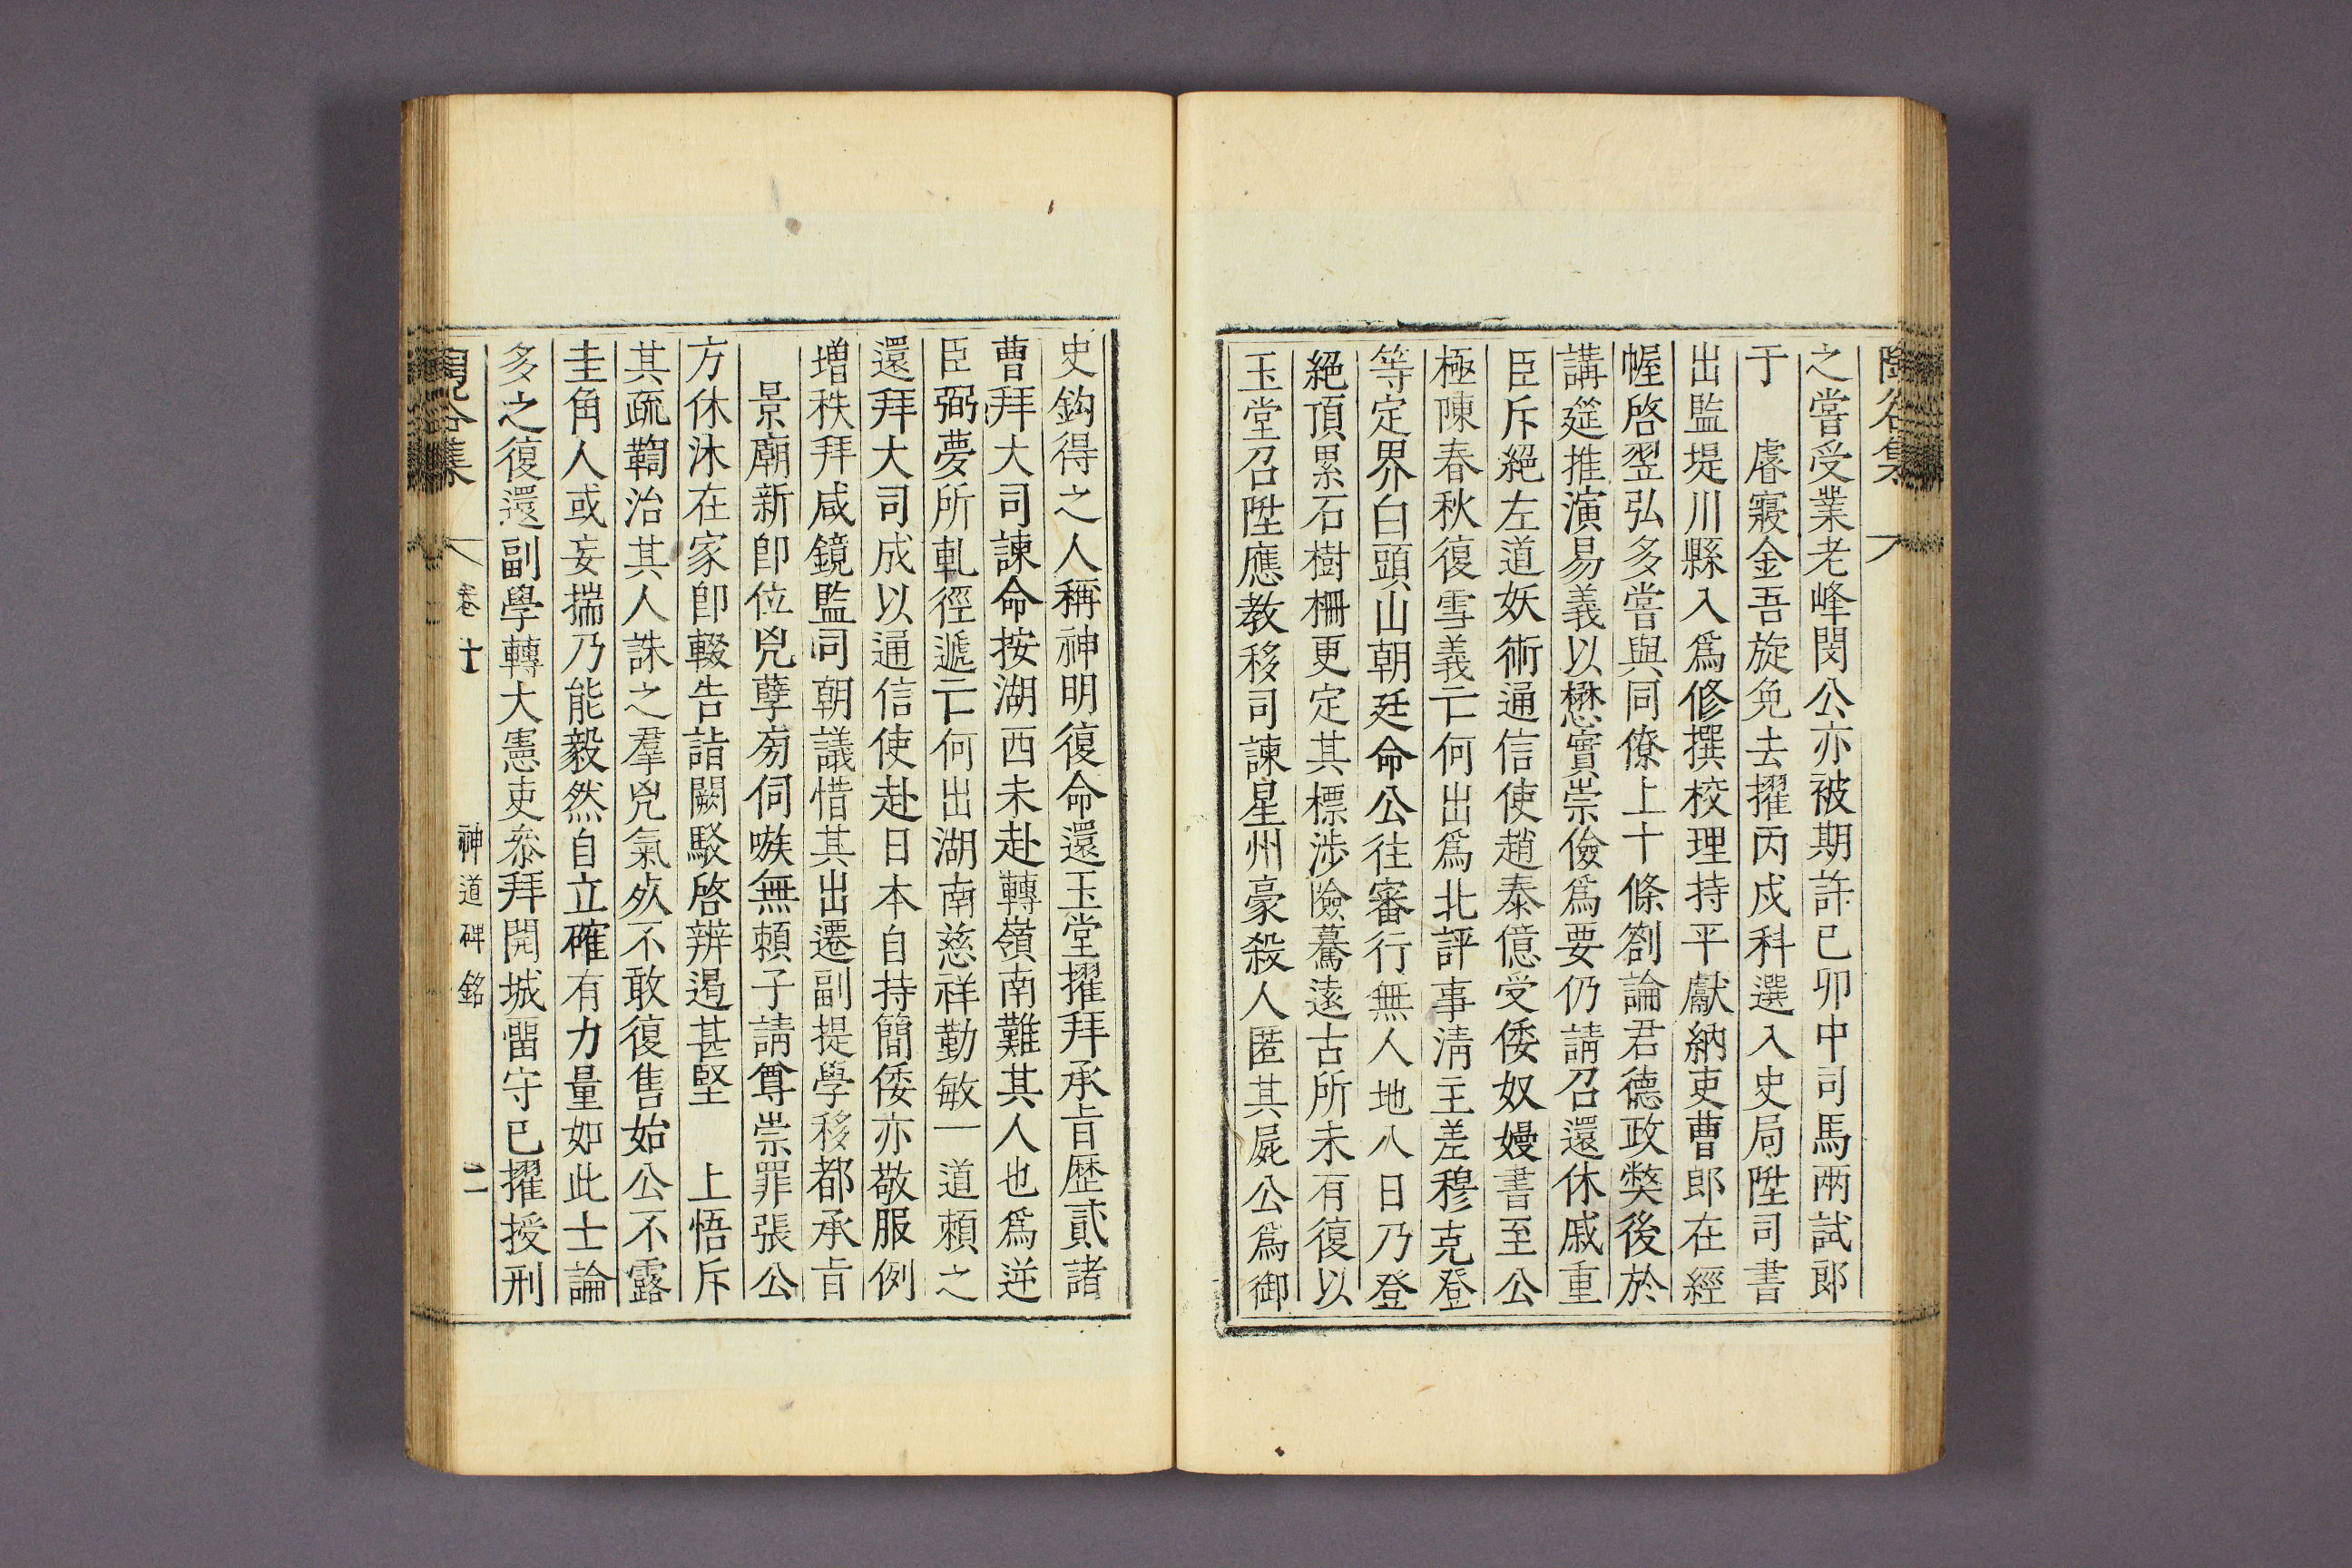 陶谷集
之嘗受業老峰閔公亦被期許己卯中司馬兩試郞
于　睿寢金吾旋免去擢丙戌科選入史局陞司書
出監堤川縣入爲修撰校理持平獻納吏曹郞在經
幄啓翌弘多嘗與同僚上十條劄論君德政獘後於
講筵推演易義以懋實崇儉爲要仍請召還休戚重
臣斥絕左道妖術通信使趙泰億受倭奴嫚書至公
極陳春秋復雪義亡何出爲北評事淸主差穆克登
等定界白頭山朝廷命公往審行無人地八日乃登
絕頂累石樹柵更定其標涉險驀遠古所未有復以
玉堂召陞應敎移司諫星州豪殺人匿其屍公爲御
史鉤得之人稱神明復命還玉堂擢拜承旨歷貳諸
曹拜大司諫命按湖西未赴轉嶺南難其人也爲逆
臣弼夢所軋徑遞亡何出湖南慈祥勤敏一道賴之
還拜大司成以通信使赴日本自持簡倭亦敬服例
增秩拜咸鏡監司朝議惜其出遷副提學移都承旨
景廟新卽位兇孼旁伺嗾無賴子請尊崇罪張公
方休沐在家卽輟告詣闕駁啓辨遏甚堅　上悟斥
其疏鞫治其人誅之羣兇氣奪不敢復售始公不露
圭角人或妄揣乃能毅然自立確有力量如此士論
多之復還副學轉大憲吏叅拜開城留守已擢授刑
陶谷集　卷十　神道碑銘　二